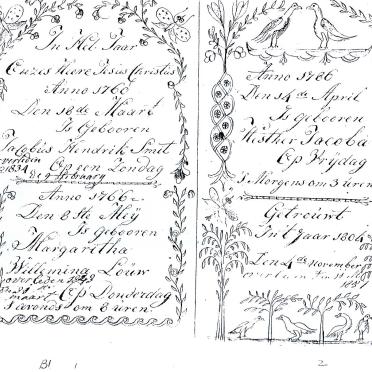 In Het Jaar
Onzes Heere Jesus Christus
Anno 1760
Den 18 de Maart
Is Gebooren
Jacobus Hendrik Smit
overleden Op een Zondag
1834 de 9
Anno 1766
Den 8 ste Meij
Is gebooren
Margaritha
Willemina Löuw
overleden 1848
maart Op Donderdag
S'avonds om 8 uren
Anno 1786
Den 14 de April
Is gebooren
Hesther Jacoba
Op Vrijdag
S'Morgens om 3 uren
Getrouwt
In't Jaar 1804
Den 4 de November
B1 1
2